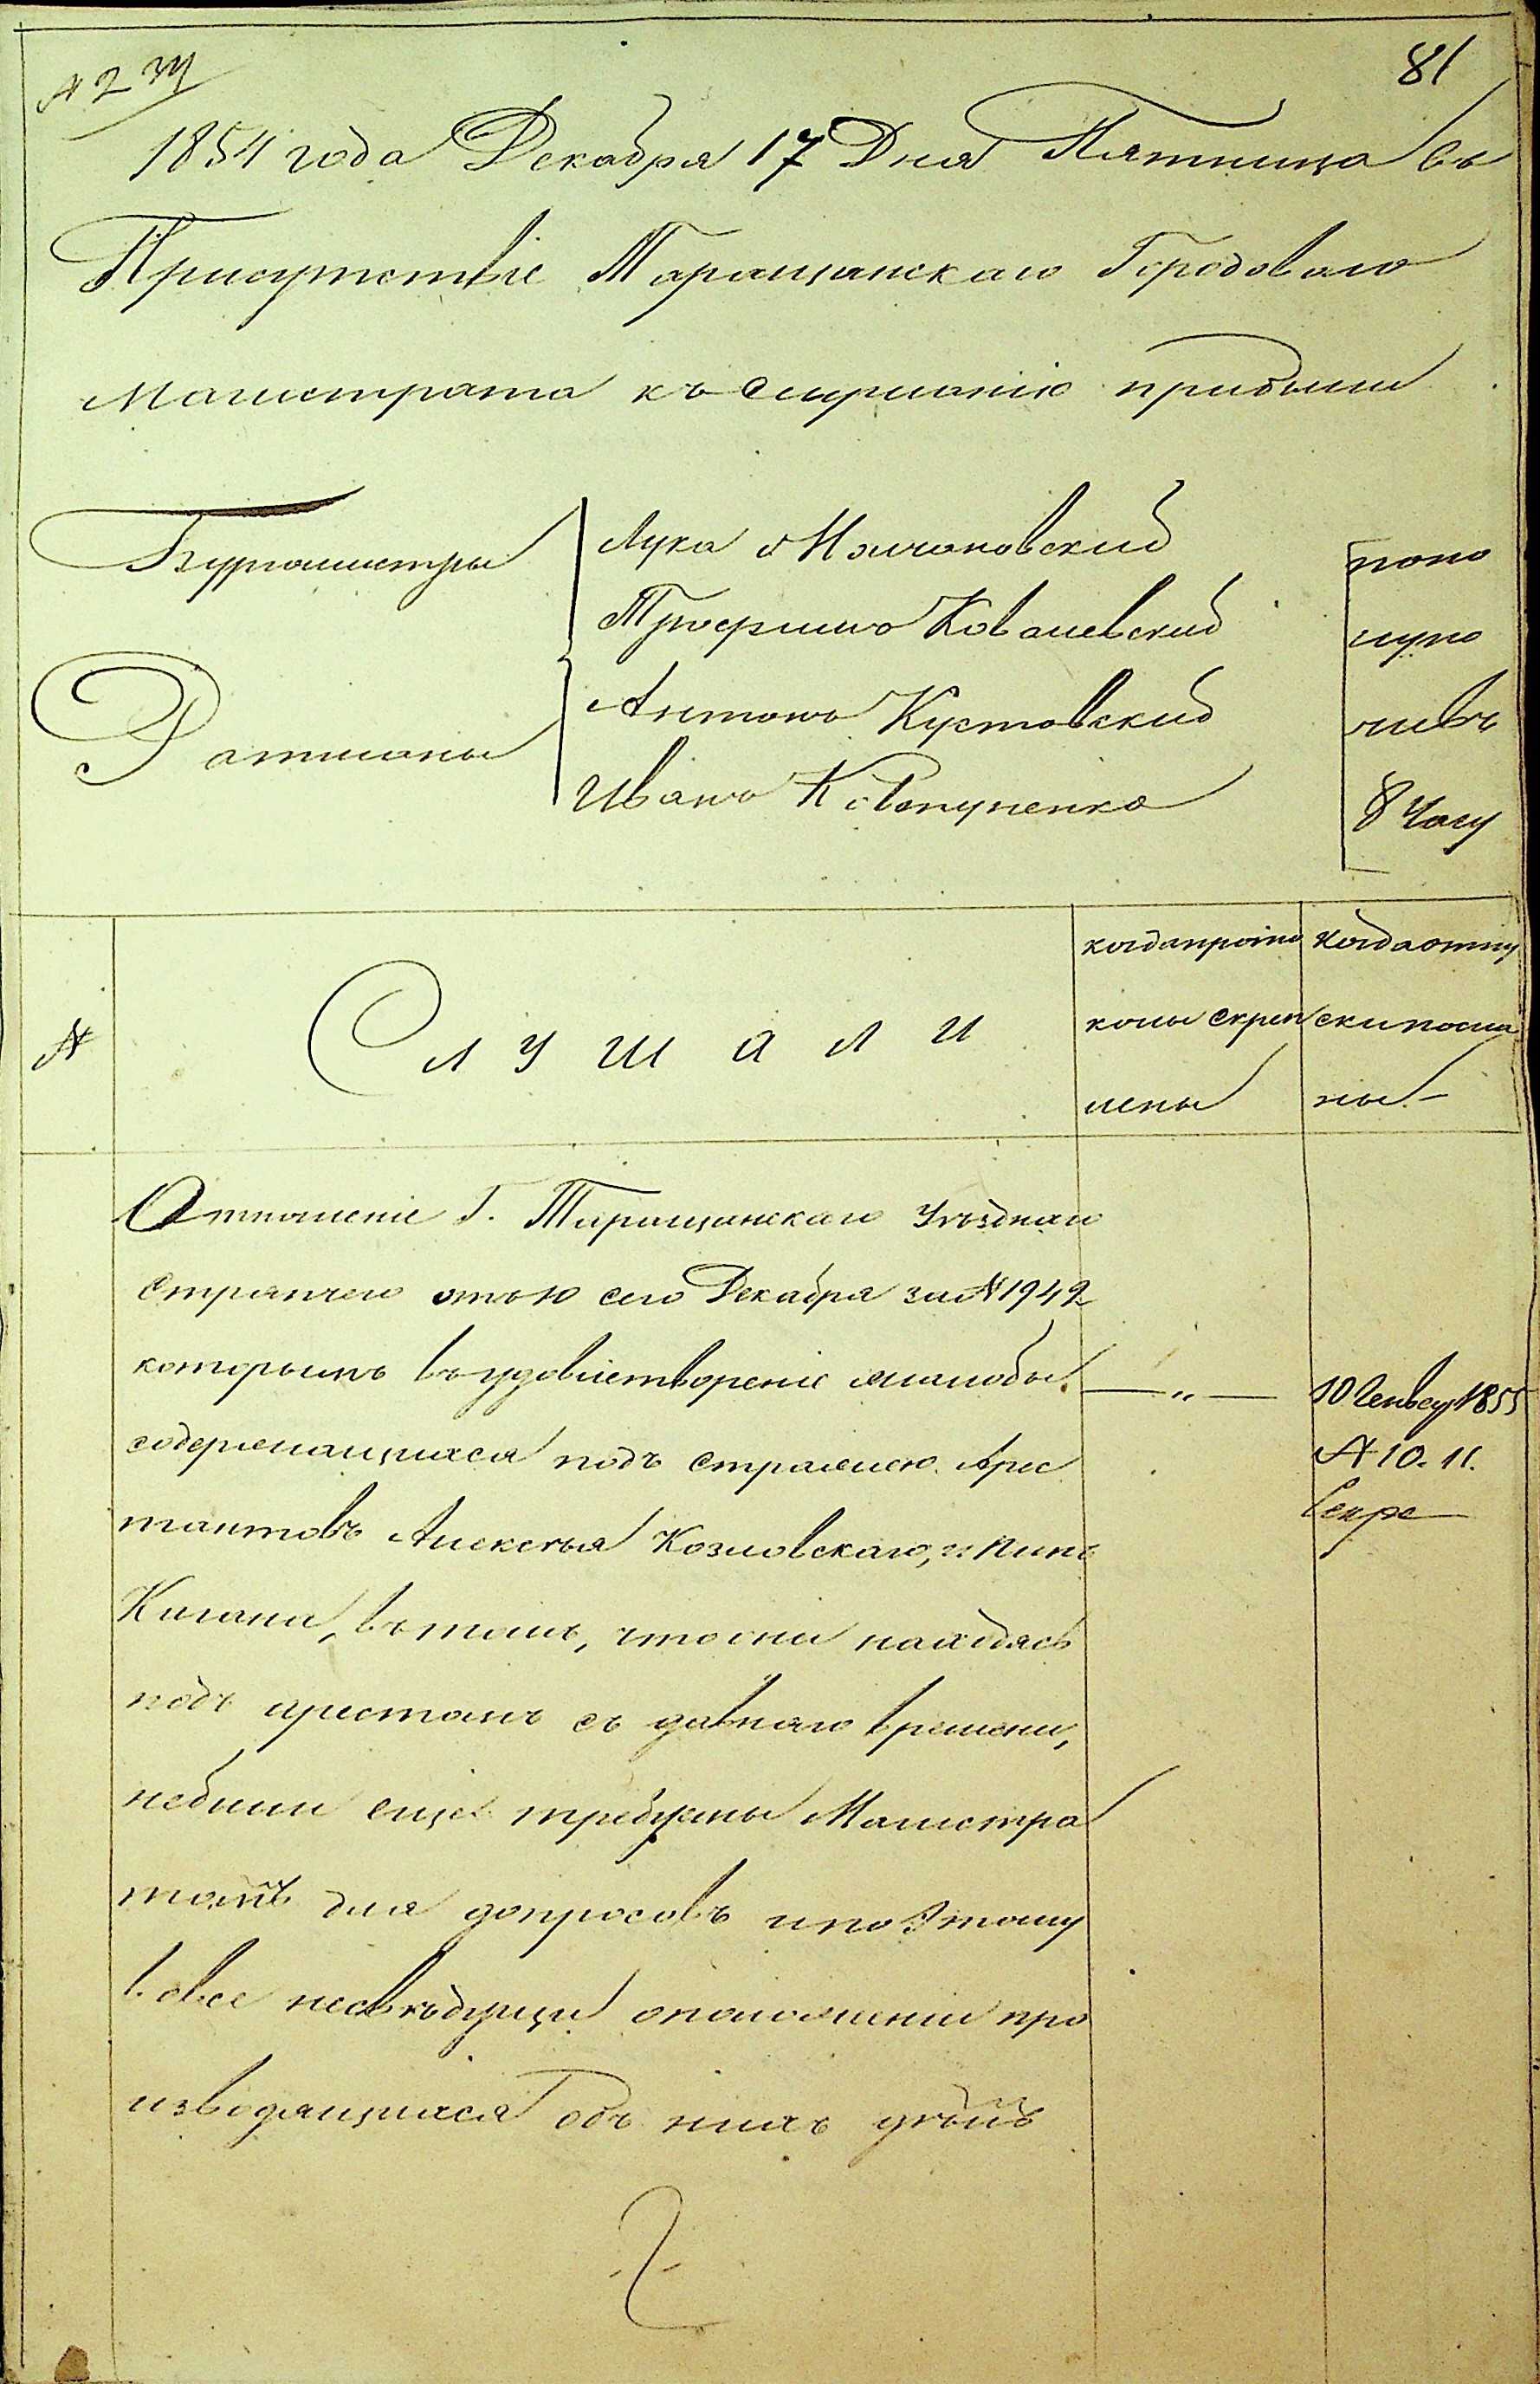 81
1854 года Декабря 17 Дня Пятница въ
Присутствіе Таращанскаго Городоваго
Магистрата къ слушанію прибыли
Бургомистры
Лука Молчановский
Ковалевский
Ратманы
Антонъ Кустовский
Иванъ Ковтуненко
попо
лупо
чивъ
8 Часу
№
Слушали
когда прото
колы скреп
лены
когда отпу
ски посла
ны. –
Отношеніе Г. Таращанскаго Уѣзднаго
Стряпчего отъ 10 сего Декабря за № 1942
которымъ въ удовлетвореніе жалобы
содержащихся подъ стражею Арес
тантовъ Алексѣя Козловскаго, и
Кагана, въ томъ, что они находясь
подъ арестомъ съ давнаго времени,
небыли еще требуемы Магистра
томъ для допросовъ и по этому
вовсе несвѣдущи о положении про
изводящихся объ нихъ дѣлъ
10 Генвар 1855
№ 10. 11.
Секре